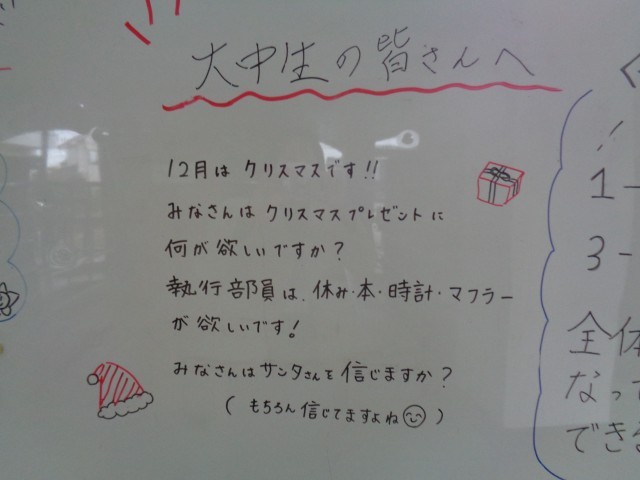 大中生の皆さんへ
12月は クリスマスです!!
みなさんは クリスマスプレゼントに
何が 欲しいですか?
執行部員は、休み・本・時計・マフラー
が 欲しいです!
みなさんはサンタさんを 信じますか?
( もちろん信じてますよね☺ )
1-
3-
全体
なって
でき